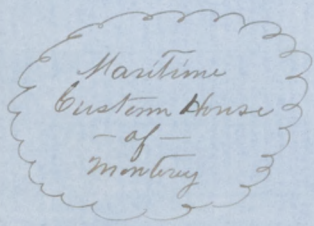 Maritime
Custom House
- of -
Monterey